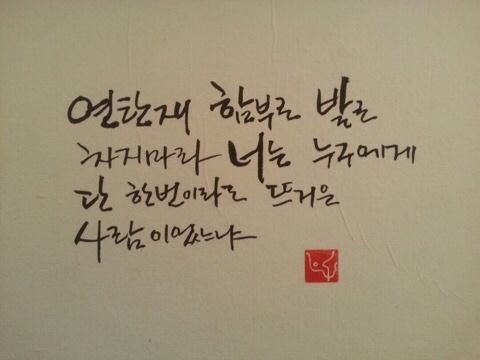 연탄재 함부로 발로
차지마라 너는 누구에게
단 한번이라도 뜨거운
사람이었느냐